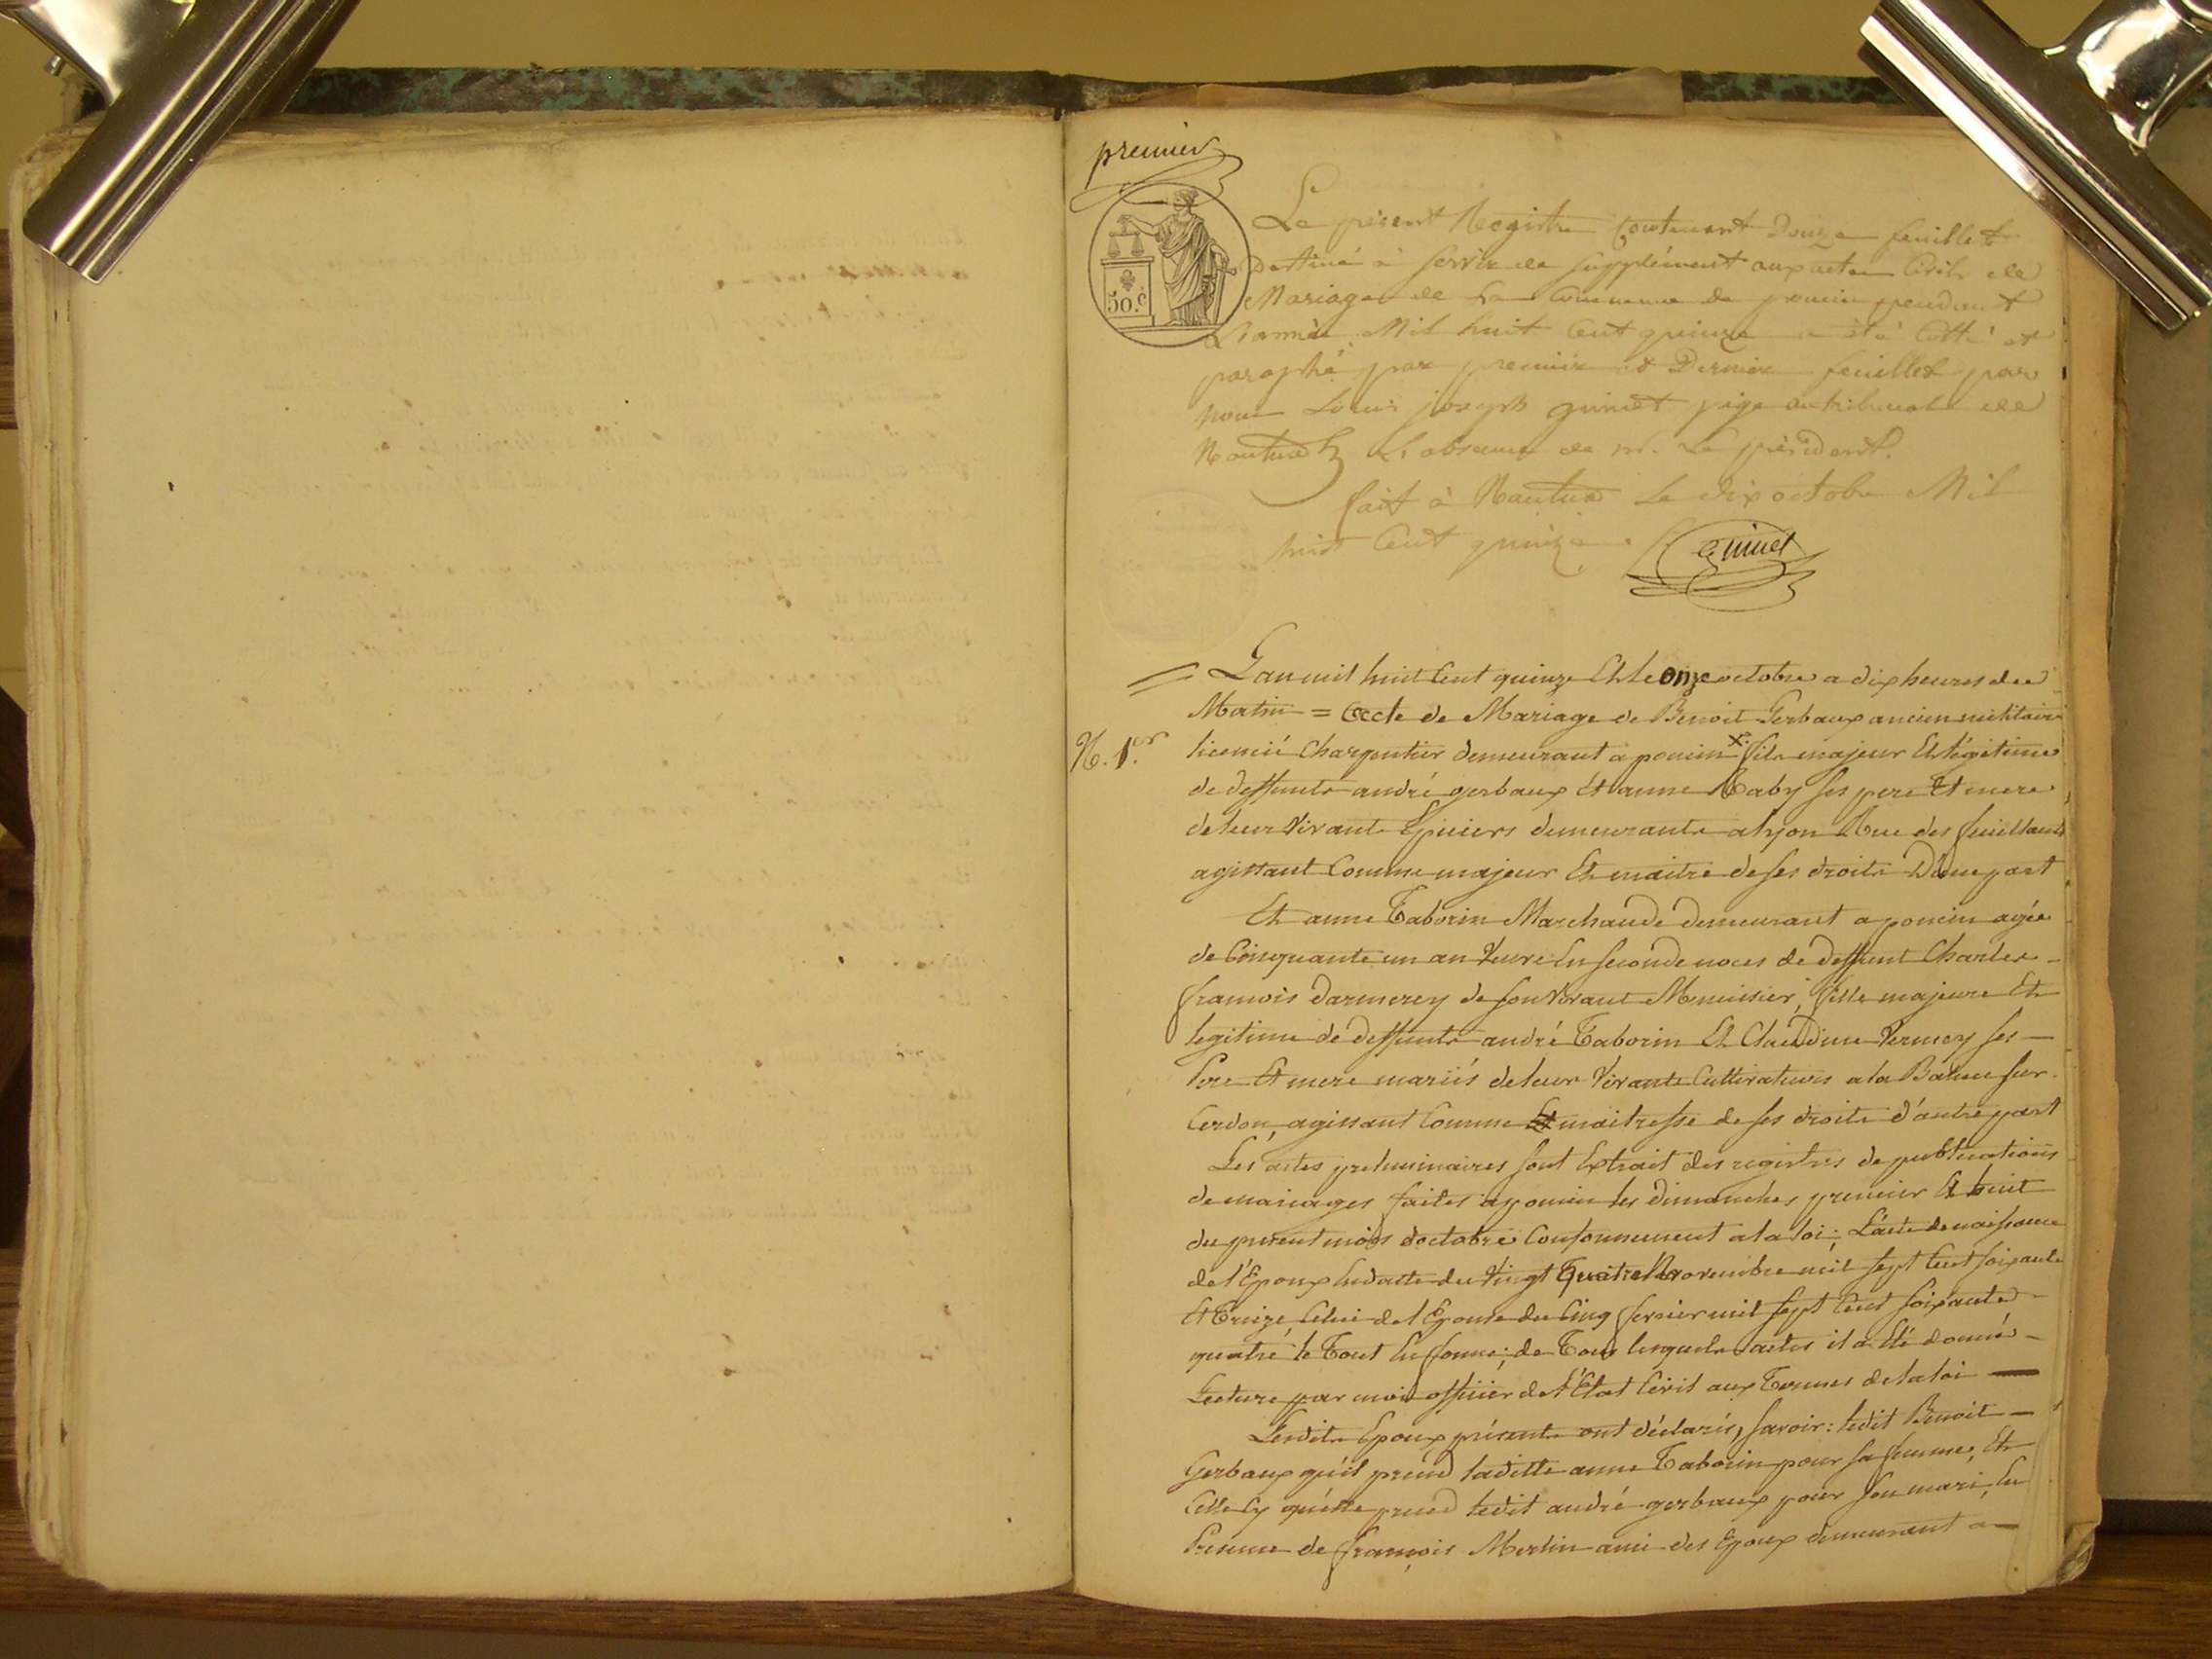 premier
50.c
Le present Registre contenant Douze feuillets
destiné à servir de supplément aux actes Civils de
Mariage de la Commune de poncin pendant
L'année Mil huit Cent quinze a été Cotté et
paraphé par premier et Dernier feuillet par
nous Louis joseph guinet juge au tribunal de
Nantua L'absence de M. Le président.
fait à Nantua Le dix octobre Mil
huit Cent quinze. Guinet
L'an mil huit Cent quinze Et le onze octobre a dix heures du
Matin = Acte de Mariage de Benoit Gerbaux ancien militaire
N. 1.er
licencié Charpentier demeurant a poncin X fils majeur Et légitime
de deffunts andré gerbaux Et anne Raby ses pere Et mere
de leur Vivants Epiciers demeurants a lyon Rue des feuillants
agissant Comme majeur Et maitre de ses droits D'une part
Et anne Taborin Marchande demeurant a poncin agée
de Cinquante un an Veuve En seconde noces de deffunt Charles
francois Darmerey de son Vivant Menuisier, fille majeure Et
legitime de deffunts andré Taborin Et Claudine Vermey ses
Pere Et mere mariés de leur Vivants Cultivateurs a la Balme sur
Cerdon, agissant Comme maitresse de ses droits d'autre part
Les actes preliminaires sont Extrait des registres de publications
de mariages faites a poncin les dimanches premier Et huit
du present mois d'octobre Conformement a la loi; L'acte de naissance
de l'Epoux En datte du Vingt Quatre Novembre mil sept Cent soixante
Et Treize, Celui de l'Epouse du Cinq fevrier mil sept Cent soixante
quatre le Tout En forme; de Tous lesquels actes il a Eté donné
Lecture par moi officier de l'Etat Civil aux Termes de la loi
Lesdits Epoux présents ont déclarés, savoir: ledit Benoit
Gerbaux qu'il prend laditte anne Taborin pour sa femme, Et
Celle Cy qu'elle prend ledit andré gerbaux pour son mari, En
Presence de françois Merlin ami des Epoux demeurant a